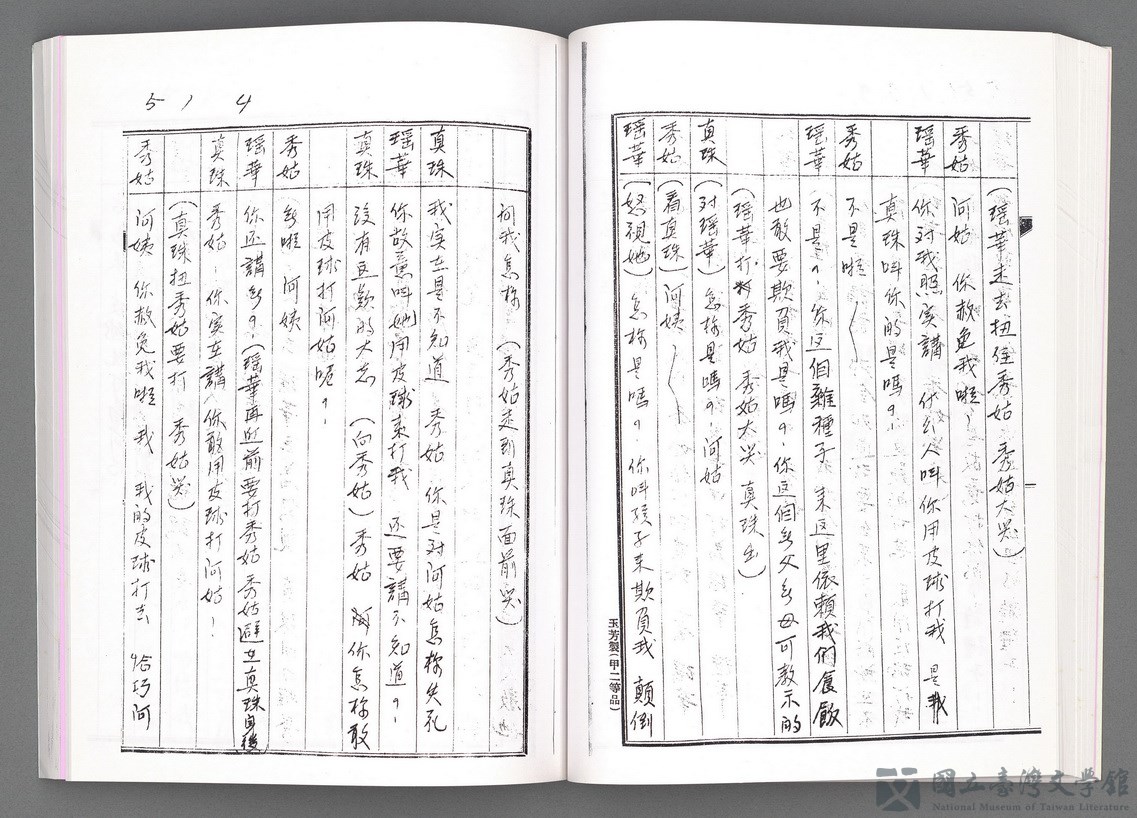 (瑶華走去扭住秀姑 秀姑大哭)
秀姑 阿姑 你赦免我啦!
瑶華 (你对我照实講 什么人叫你用皮球打我 是我
真珠叫你的是嗎?
秀姑 不是啦
瑶華 不是?你这個雜種子 来这里依賴我們食飯
也敢要欺負我是嗎?你这個無父無母可教示的
(瑶華打秀姑 秀姑大哭 真珠出)
真珠 (对瑶華)怎樣是嗎?阿姑
秀姑 (看真珠)阿姨
瑶華 (怒視她)怎樣是嗎?你叫孩子来欺負我 顛倒
玉芳製(甲二等品)
514
问我怎樣 (秀姑走到真珠面前哭)
真珠 我实在是不知道 秀姑 你是对阿姑怎樣失礼
瑶華 你故意叫她用皮球来打我 还要講不知道?
真珠 没有这款的大志 (向秀姑)秀姑 你怎樣敢
用皮球打阿姑呢?
秀姑 無啦 阿姨
瑶華 你还講無?(瑶華再近前要打秀姑 秀姑避在真珠身後)
真珠 秀姑!你实在講 你敢用皮球打阿姑!
(真珠扭秀姑要打 秀姑哭)
秀姑 阿姨 你赦免我啦 我 我的皮球打去 恰巧阿
國立臺灣文學館
National Museum of Taiwan Literature